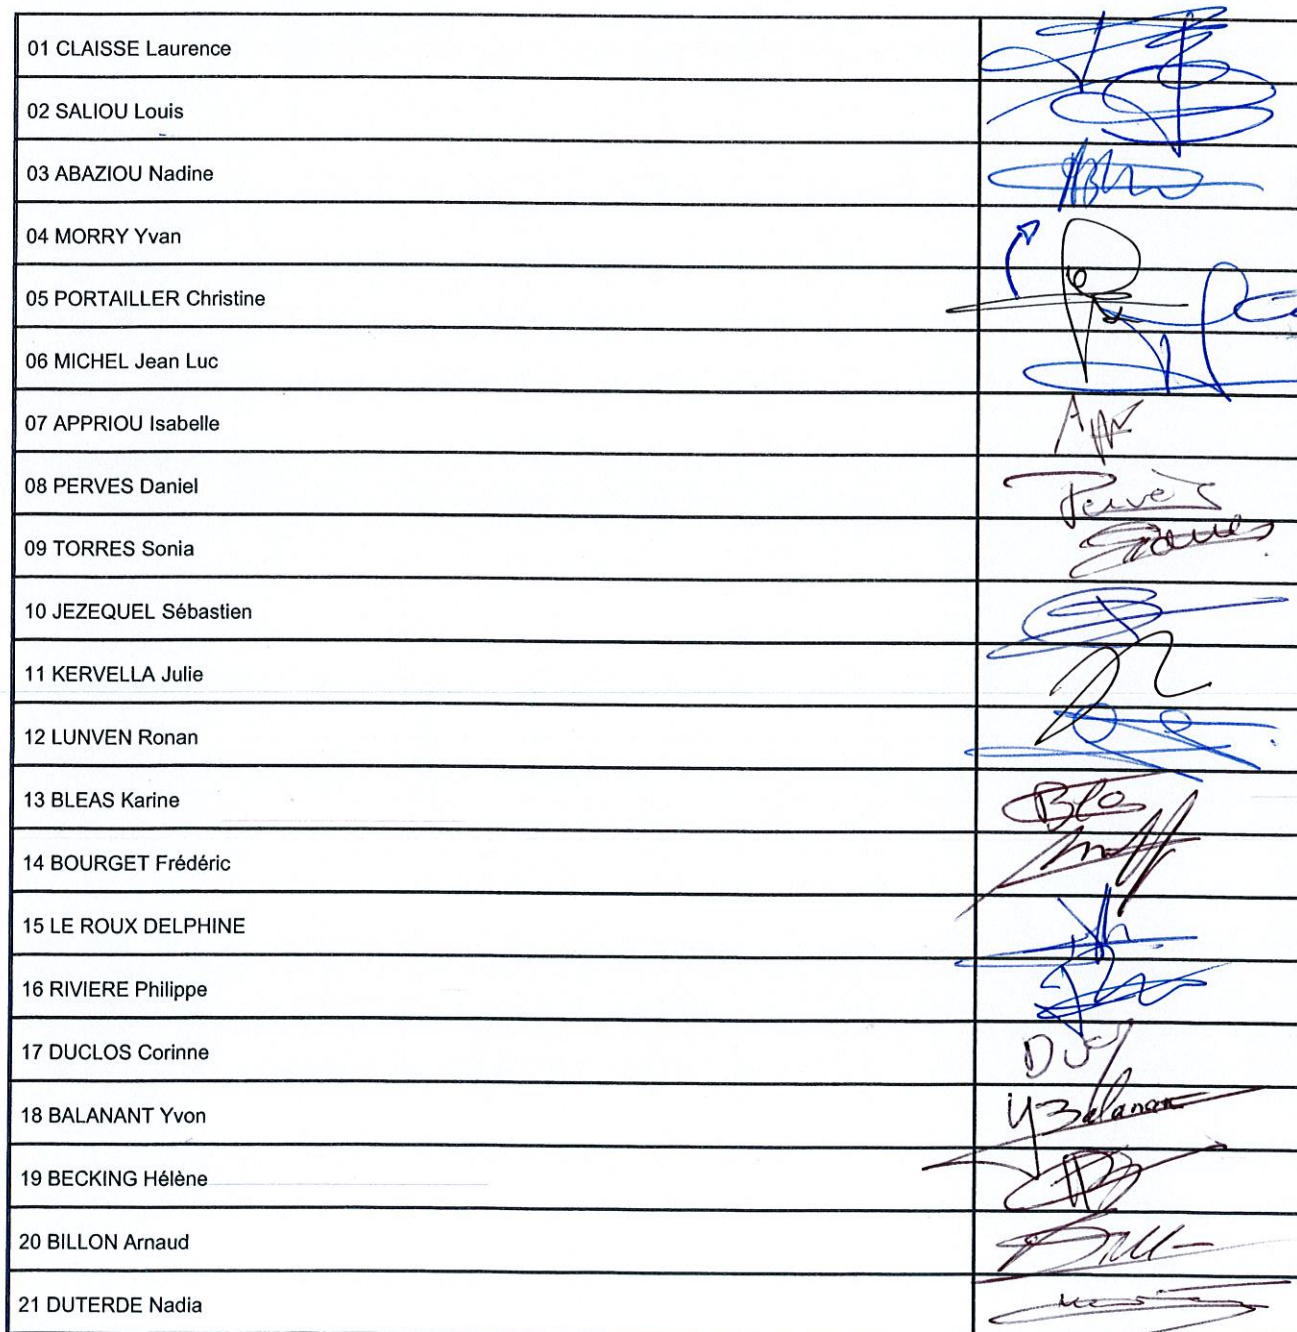 01 CLAISSE Laurence
02 SALIOU Louis
03 ABAZIOU Nadine
04 MORRY Yvan
05 PORTAILLER Christine
06 MICHEL Jean Luc
07 APPRIOU Isabelle
08 PERVES Daniel Pervès
09 TORRES Sonia
10 JEZEQUEL Sébastien
11 KERVELLA Julie
12 LUNVEN Ronan
13 BLEAS Karine
14 BOURGET Frédéric
15 LE ROUX DELPHINE
16 RIVIERE Philippe
17 DUCLOS Corinne
18 BALANANT Yvon Y Balanant
19 BECKING Hélène
20 BILLON Arnaud
21 DUTERDE Nadia